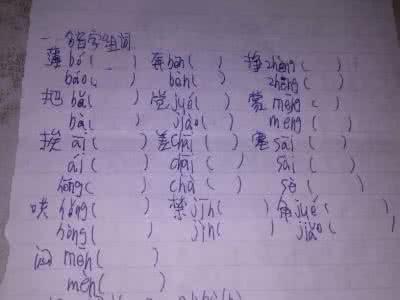 一、多音字组词
薄 bó ( ) 奔 bēn ( ) 挣 zhēng ( )
báo ( ) bèn ( ) zhèng ( )
把 bǎ ( ) 觉 jué ( ) 蒙 mēng ( )
bà ( ) jiào ( ) méng ( )
挨 āi ( ) 差 chāi ( ) 塞 sāi ( )
ái ( ) chāi ( ) sài ( )
hōng ( ) chà ( ) sè ( )
哄 hǒng ( ) 禁 jīn ( ) 角 jué ( )
hòng ( ) jìn ( ) jiǎo ( )
闷 mēn ( )
mèn ( )